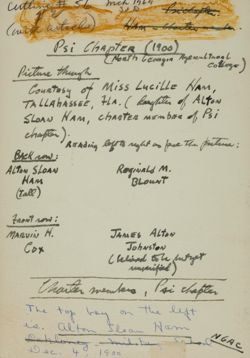 Psi Chapter (1900)
(North Georgia Agricultural College)
Picture through
Courtesy of Miss Lucille Ham,
Tallahassee, Fla. (daughter of Alton
Sloan Ham, charter member of Psi
chapter).
Reading left to right on face the picture:
Back row:
Alton Sloan Ham (tall)
Reginald M. Blount
Front row:
Marvin H. Cox
James Alton Johnston
(believed to be but yet unverified)
Charter members, Psi chapter
The top boy on the left
is Alton Sloan Ham
NGAC
Dec. 4, 1900